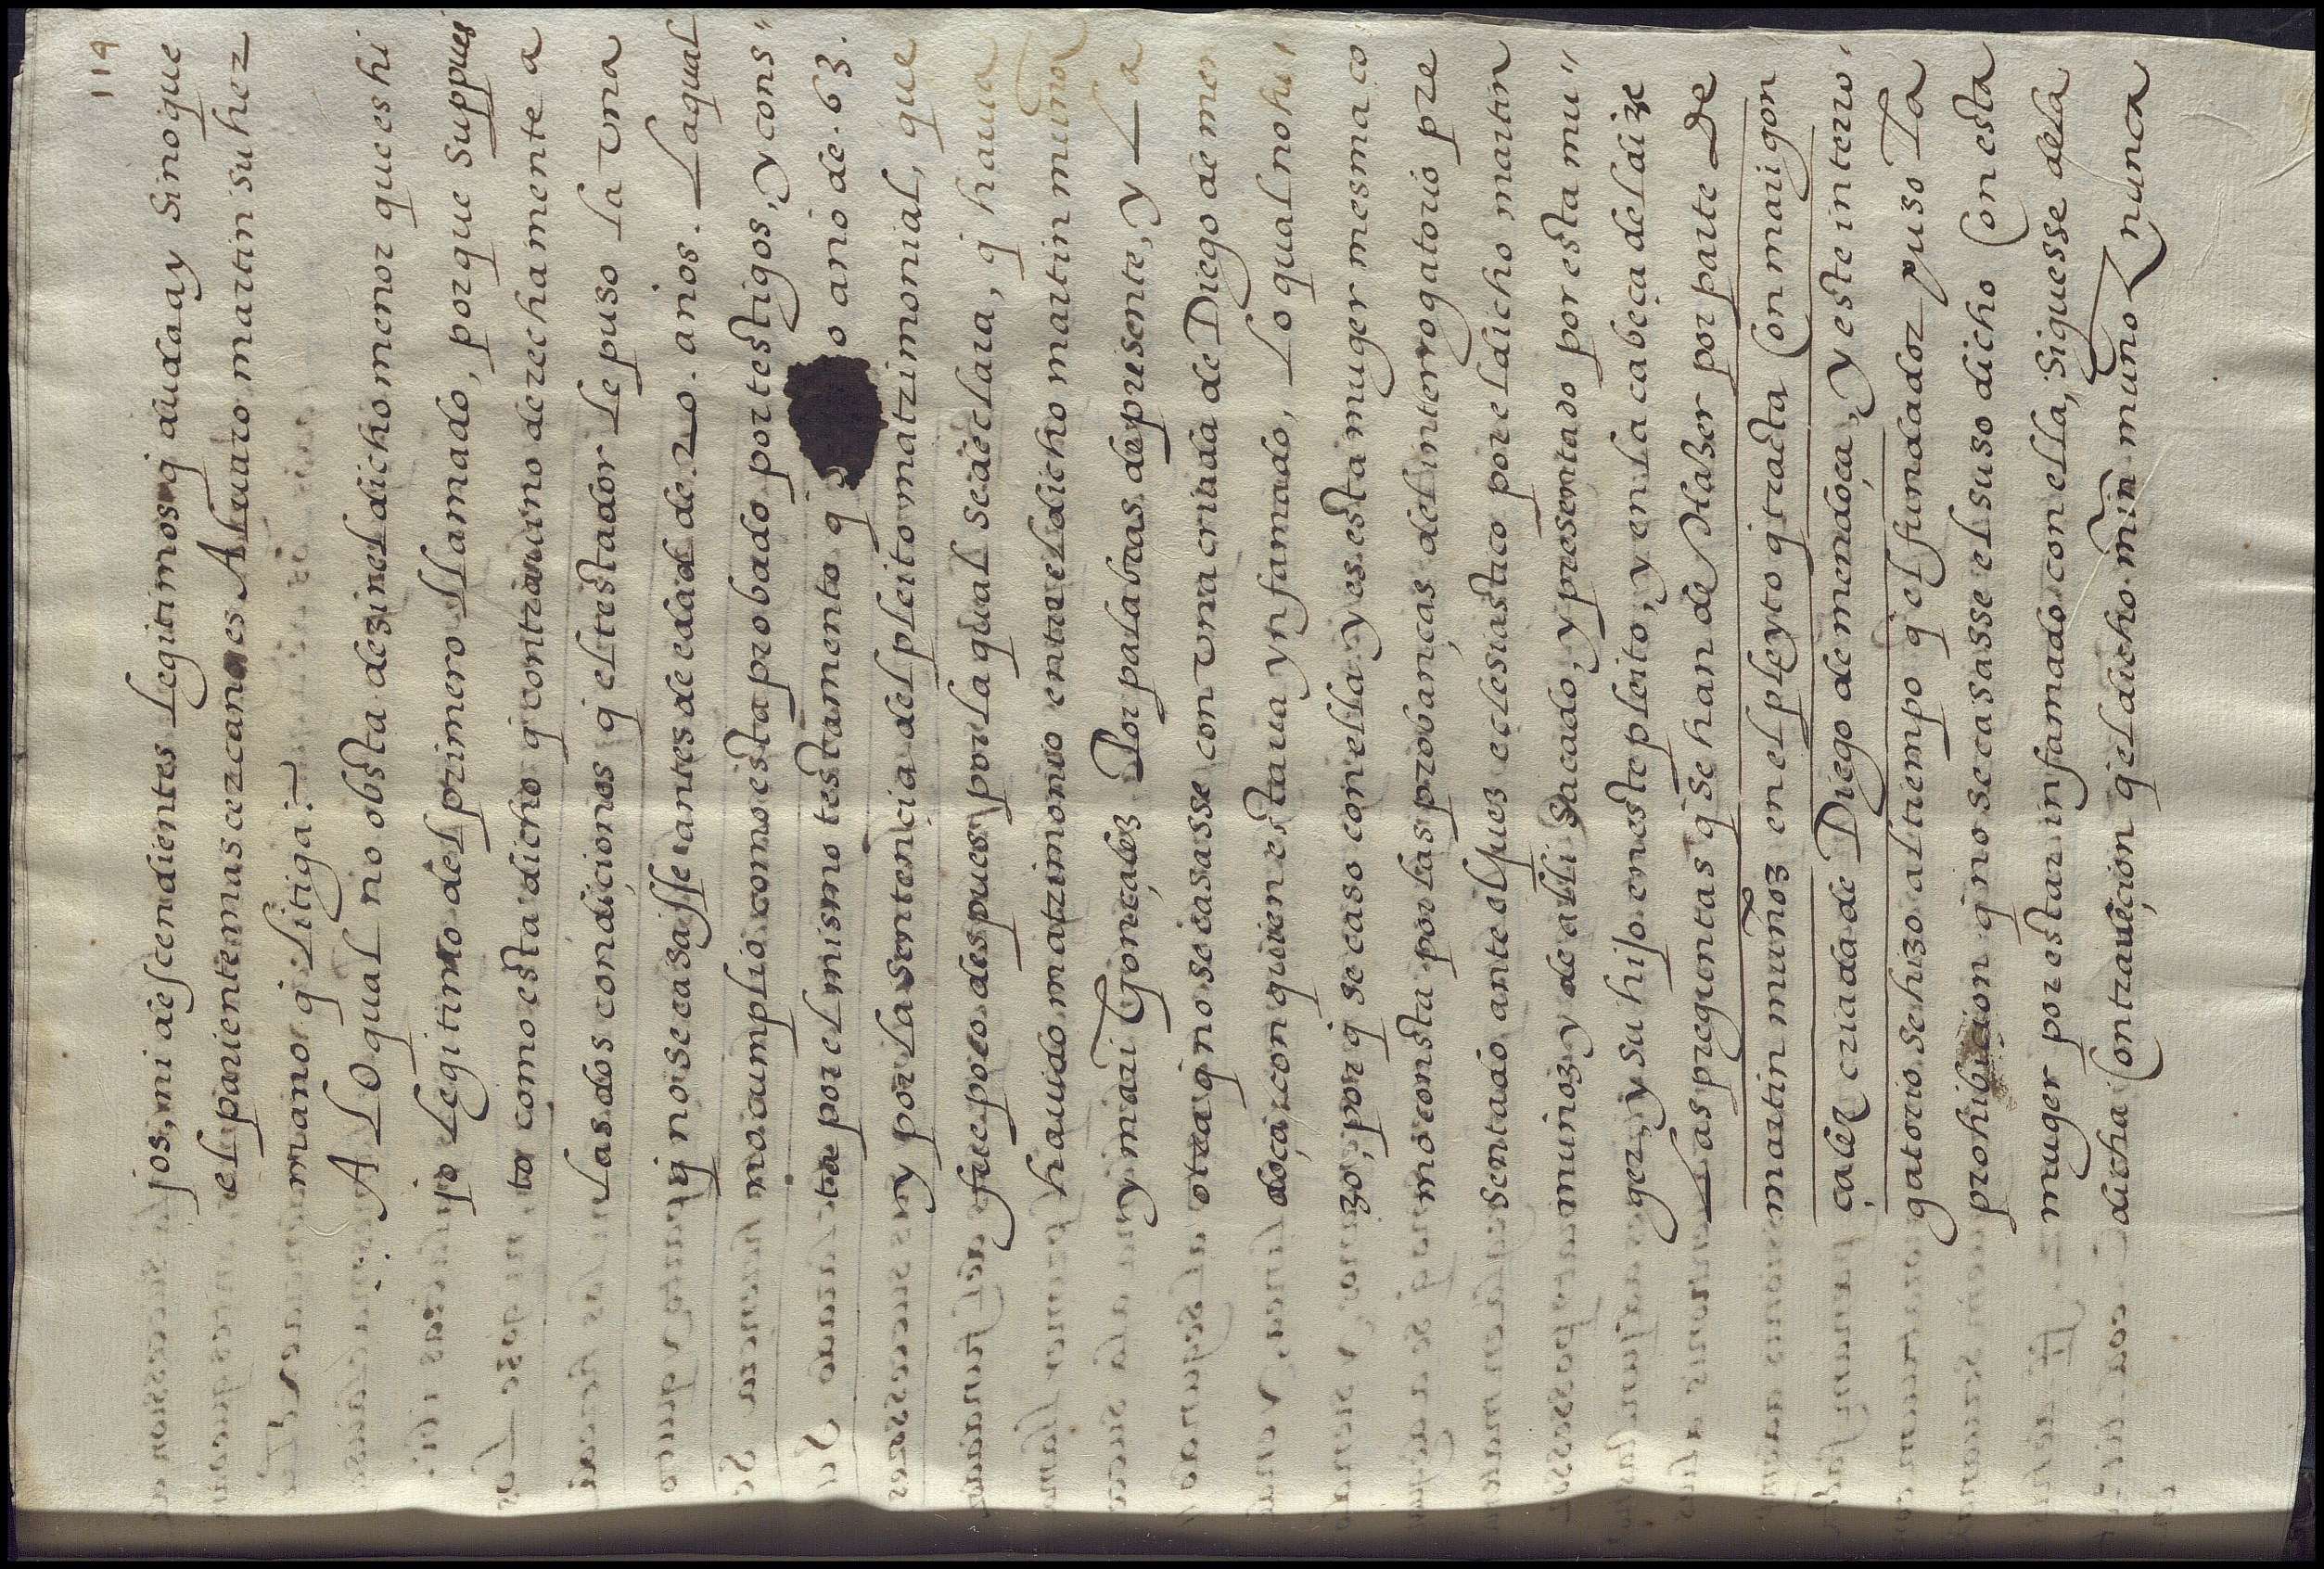 119
jos, ni descendientes legitimos q̄ duda ay sino que
el pariente mas cercano es Aluaro martin su her
mano q̄ litiga:~
A Lo qual no obsta dezir el dicho menor que es hi
jo legitimo del primero llamado, porque suppues
to como esta dicho q̄ contrauino derechamente a
las dos condiçiones q̄ el testador le puso la vna
q̄ no se casasse antes de edad de 20. años. La qual
no cumplio como esta probado por testigos, y cons"
ta por el mismo testamento q̄ o año de .63.
y por la sentençia del pleito matrimonial, que
fue poco despues por la qual se declara, q̄ hauia
hauido matrimonio entre el dicho martin muñoz
y mari Gonçalez Por palabras de presente, y La
otra q̄ no se casasse con vna criada de Diego de men
doça, con quien estaua ynfamado, Lo qual no hi"
zo, por q̄ se caso con ella, y es esta muger mesma co
mo consta por las probanças del interrogatorio pre
sentado ante el Juez eclesiastico por el dicho martin
munoz, y de alli sacado, y presentado por esta mu"
ger, y su hijo en este pleito, y en la cabeça del dize
Las preguntas q̄ se han de Hazer por parte De
martin muñoz en el pleyto q̄ tracta Con mari gon
çalez criada de Diego de mendoça, y este interro"
gatorio se hizo al tiempo q̄ el fundador puso La
prohibiçion q̄ no se casasse el suso dicho Con esta
muger por estar infamado con ella, siguesse de la
dicha Contraviçion q̄ el dicho mīn muño Z nunca